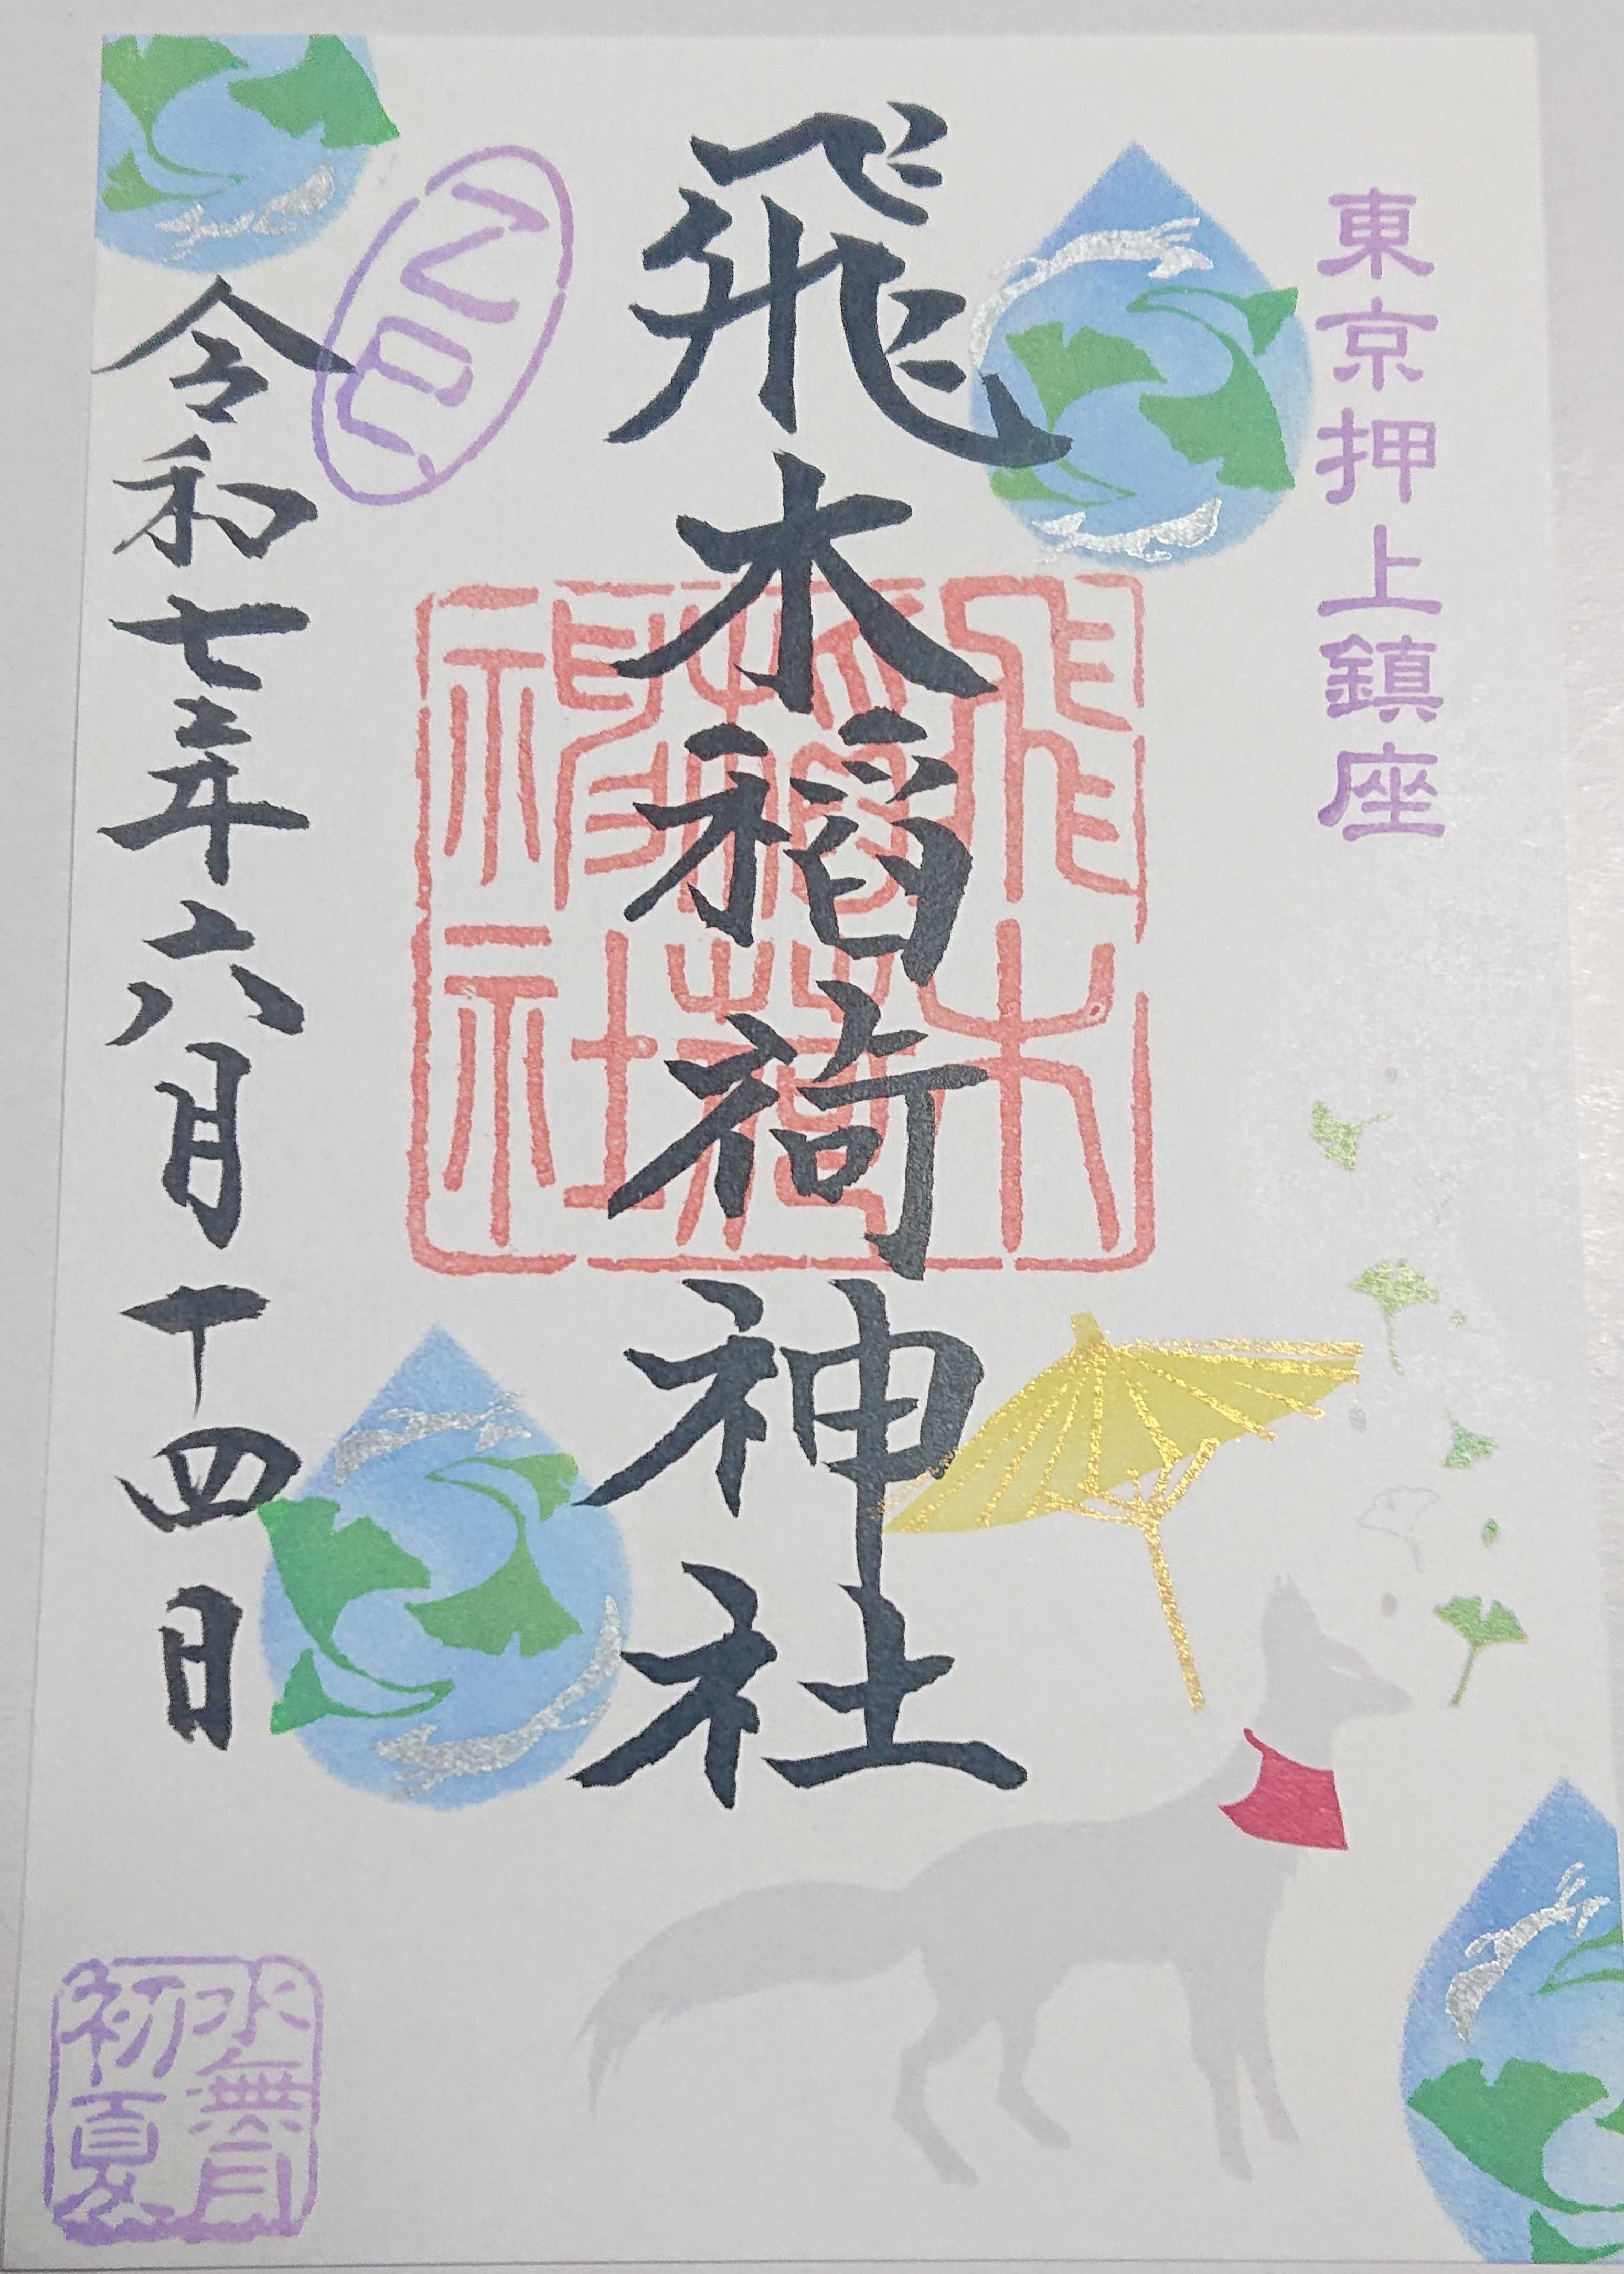 東京押上鎮座
飛木稲荷神社
飛木
稲荷
神社
乙巳
令和七年六月十四日
水無月
初夏